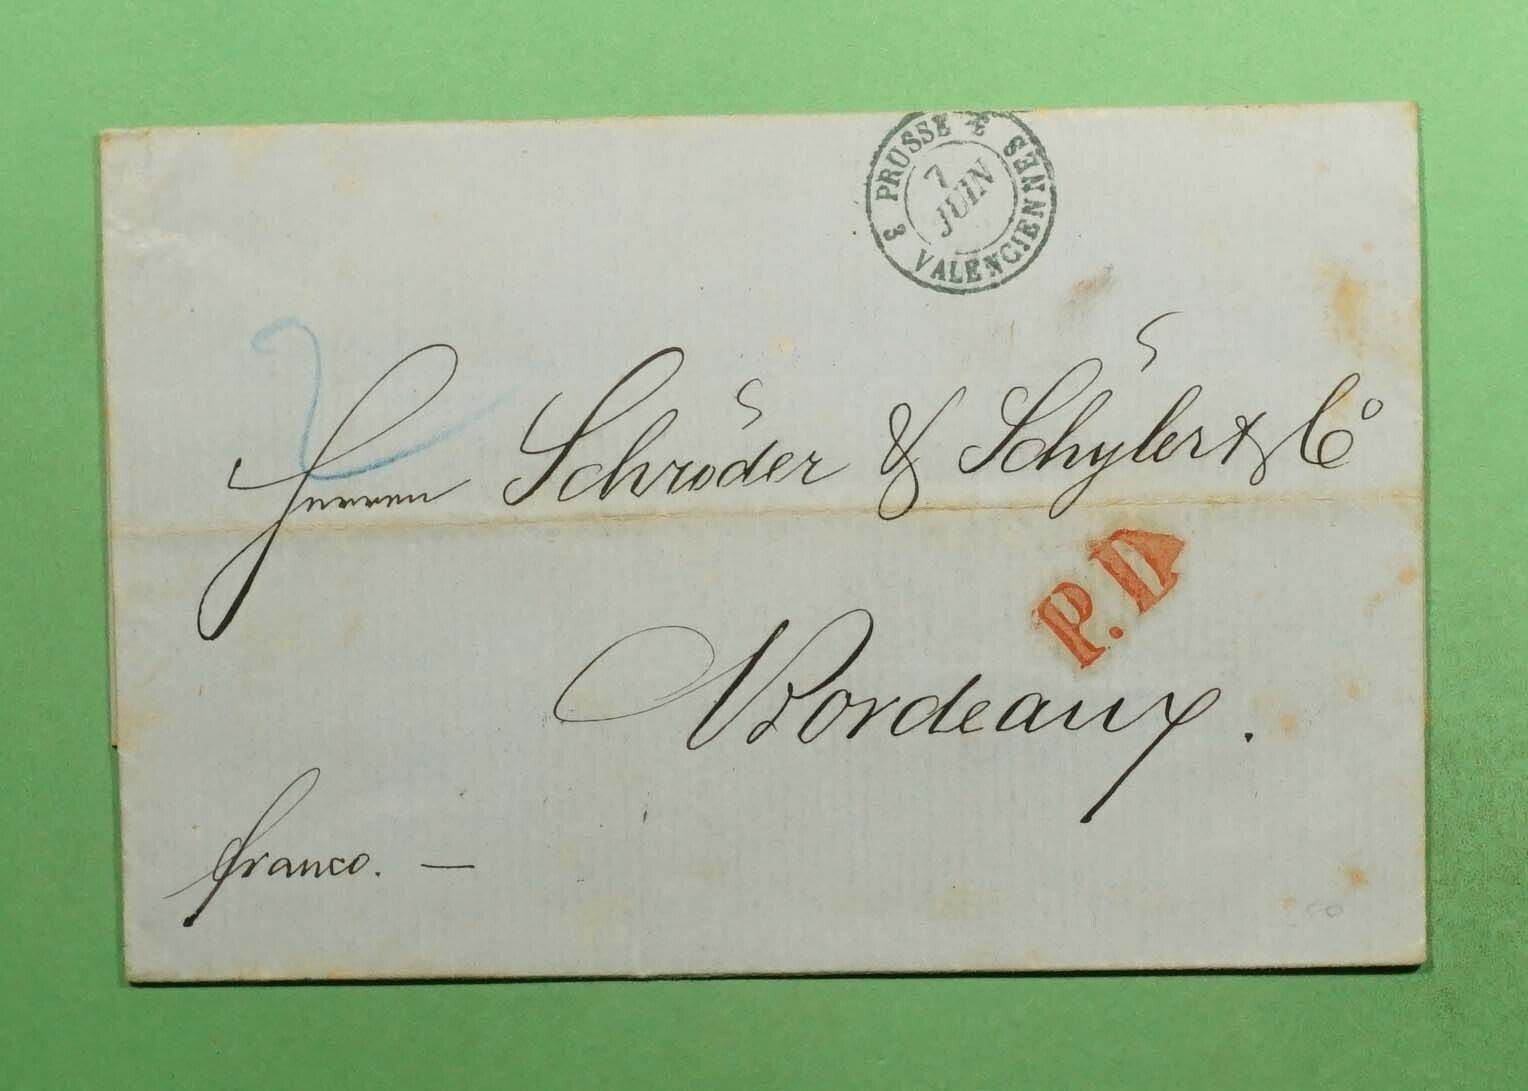 3 PRUSSE 3 VALENCIENNES
7
JUIN
2
Herren Schröder & Schÿler & Co
P.D.
Bordeaux.
franco. —